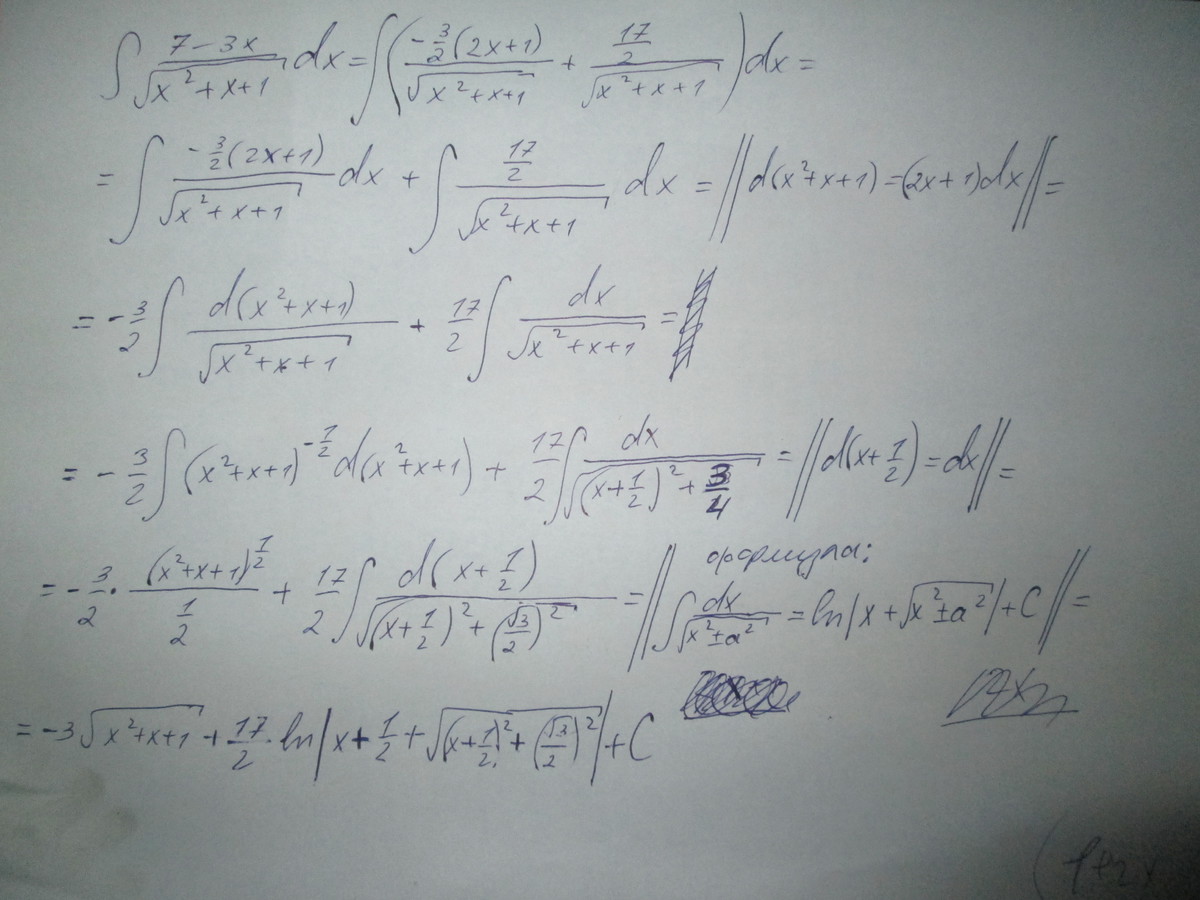 ∫ (7-3x)/√(x²+x+1) dx = ∫( (-3/2(2x+1))/√(x²+x+1) + (17/2)/√(x²+x+1) )dx =
= ∫ (-3/2(2x+1))/√(x²+x+1) dx + ∫ (17/2)/√(x²+x+1) dx = ‖d(x²+x+1)=(2x+1)dx‖ =
= -3/2 ∫ d(x²+x+1)/√(x²+x+1) + 17/2 ∫ dx/√(x²+x+1) =
= -3/2 ∫(x²+x+1)^(-1/2) d(x²+x+1) + 17/2 ∫ dx/√((x+1/2)²+3/4) = ‖d(x+1/2)=dx‖ =
= -3/2 · (x²+x+1)^(1/2)/(1/2) + 17/2 ∫ d(x+1/2)/√((x+1/2)²+(√3/2)²) = ‖формула: ∫ dx/√(x²±a²) = ln|x+√(x²±a²)|+C‖ =
= -3√(x²+x+1) + 17/2 · ln|x+1/2+√((x+1/2)²+(√3/2)²)|+C